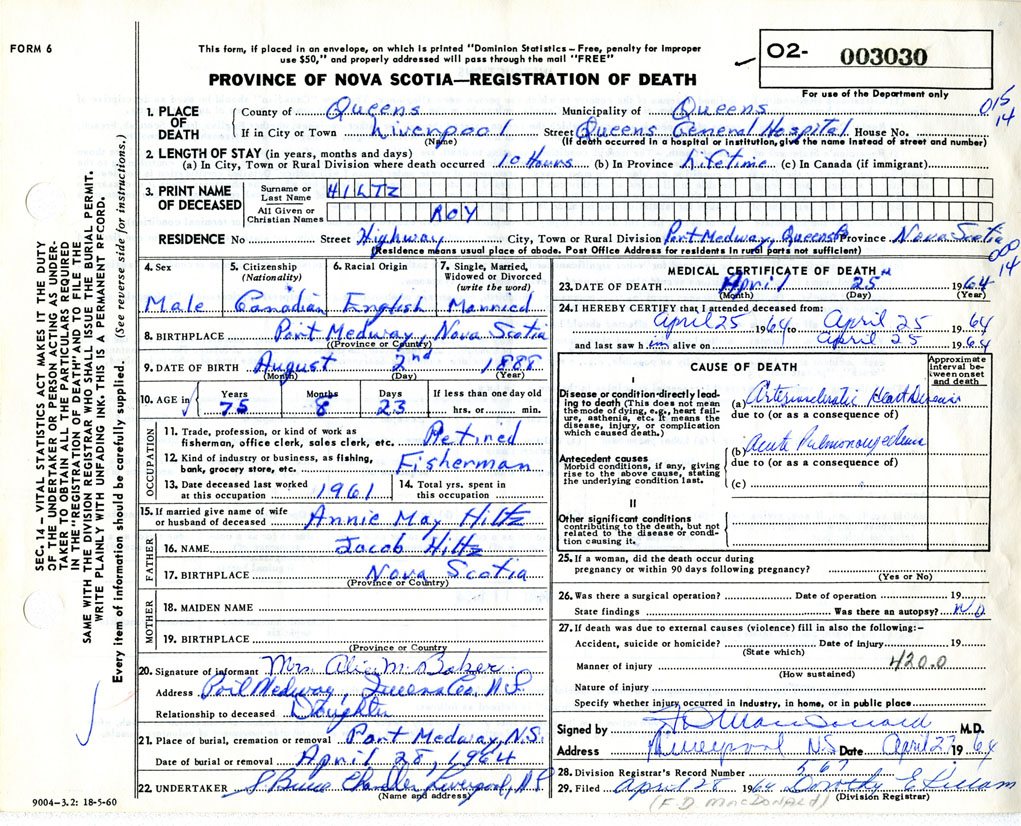 FORM 6
This form, if placed in an envelope, on which is printed "Dominion Statistics – Free, penalty for improper
use $50," and properly addressed will pass through the mail "FREE"
PROVINCE OF NOVA SCOTIA—REGISTRATION OF DEATH
O2- 003030
For use of the Department only
015
14
1. PLACE OF DEATH
County of Queens Municipality of Queens
If in City or Town Liverpool Street Queens General Hospital House No.
(Name) (If death occurred in a hospital or institution, give the name instead of street and number)
2. LENGTH OF STAY (in years, months and days)
(a) In City, Town or Rural Division where death occurred 10 Hours (b) In Province Lifetime (c) In Canada (if immigrant)
3. PRINT NAME OF DECEASED
Surname or Last Name HILTZ
All Given or Christian Names ROY
RESIDENCE No Street Highway City, Town or Rural Division Port Medway, Queens Province Nova Scotia
(Residence means usual place of abode. Post Office Address for residents in rural parts not sufficient)
000
14
4. Sex
Male
5. Citizenship
(Nationality)
Canadian
6. Racial Origin
English
7. Single, Married,
Widowed or Divorced
(write the word)
Married
8. BIRTHPLACE Port Medway, Nova Scotia
(Province or Country)
9. DATE OF BIRTH August 2nd 1888
(Month) (Day) (Year)
10. AGE in Years Months Days If less than one day old
75 8 23 hrs. or min.
OCCUPATION
11. Trade, profession, or kind of work as
fisherman, office clerk, sales clerk, etc. Retired
12. Kind of industry or business, as fishing,
bank, grocery store, etc. Fisherman
13. Date deceased last worked
at this occupation 1961
14. Total yrs. spent in
this occupation
15. If married give name of wife
or husband of deceased Annie May Hiltz
FATHER
16. NAME Jacob Hiltz
17. BIRTHPLACE Nova Scotia
(Province or Country)
MOTHER
18. MAIDEN NAME
19. BIRTHPLACE
(Province or Country)
20. Signature of informant Mrs. Alice M. Baker
Address Port Medway, Queens Co., N.S.
Relationship to deceased Daughter
21. Place of burial, cremation or removal Port Medway, N.S.
Date of burial or removal April 28, 1964
22. UNDERTAKER S. Bruce Chandler Liverpool, N.S.
(Name and address)
9004-3.2: 18-5-60
MEDICAL CERTIFICATE OF DEATH
23. DATE OF DEATH April 25 1964
(Month) (Day) (Year)
24. I HEREBY CERTIFY that I attended deceased from:
April 25 1964 to April 25 1964
and last saw him alive on April 25 1964
CAUSE OF DEATH
Approximate
interval be-
tween onset
and death
I
Disease or condition directly lead-
ing to death (This does not mean
the mode of dying, e.g., heart fail-
ure, asthenia, etc. It means the
disease, injury, or complication
which caused death.)
(a) Arteriosclerotic Heart Disease
due to (or as a consequence of)
Antecedent causes
Morbid conditions, if any, giving
rise to the above cause, stating
the underlying condition last.
(b) Acute Pulmonary edema
due to (or as a consequence of)
(c)
II
Other significant conditions
contributing to the death, but not
related to the disease or condi-
tion causing it.
25. If a woman, did the death occur during
pregnancy or within 90 days following pregnancy?
(Yes or No)
26. Was there a surgical operation? Date of operation 19
State findings Was there an autopsy? NO
27. If death was due to external causes (violence) fill in also the following:–
Accident, suicide or homicide? Date of injury 19
(State which)
Manner of injury 420.0
(How sustained)
Nature of injury
Specify whether injury occurred in industry, in home, or in public place
Signed by F D MacDonald M.D.
Address Liverpool N.S. Date April 27 1964
28. Division Registrar's Record Number 567
29. Filed April 28 1964 Dorothy E Killam
(F. D. MACDONALD) (Division Registrar)
SEC. 14 – VITAL STATISTICS ACT MAKES IT THE DUTY
OF THE UNDERTAKER OR PERSON ACTING AS UNDER-
TAKER TO OBTAIN ALL THE PARTICULARS REQUIRED
IN THE "REGISTRATION OF DEATH" AND TO FILE THE
SAME WITH THE DIVISION REGISTRAR WHO SHALL ISSUE THE BURIAL PERMIT.
WRITE PLAINLY WITH UNFADING INK. THIS IS A PERMANENT RECORD.
Every item of information should be carefully supplied. (See reverse side for instructions.)